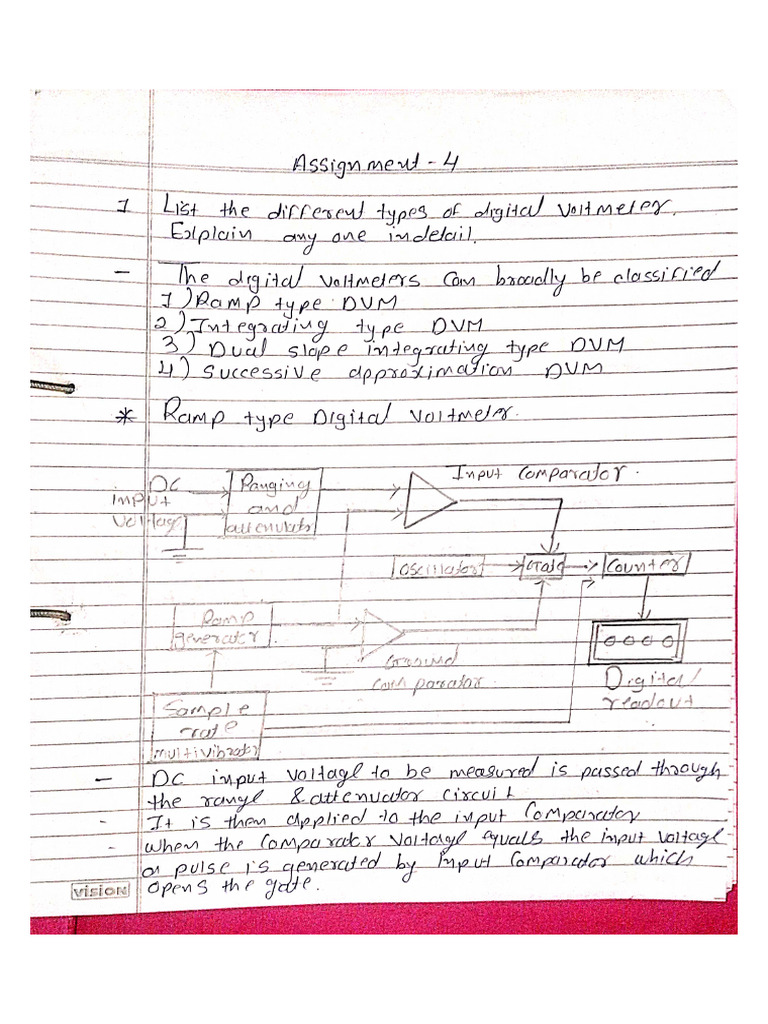 Assignment - 4
1 List the different types of digital voltmeter.
Explain any one indetail.
- The digital voltmeters can broadly be classified
1) Ramp type DVM
2) Integrating type DVM
3) Dual slope integrating type DVM
4) Successive approximation DVM
* Ramp type Digital Voltmeter.
DC
input
voltage
Ranging
and
attenuator
Input Comparator.
Oscillator
Gate
Counter
Ramp
generator.
Ground
Comparator.
Digital
readout
Sample
rate
multivibrator
- DC input voltage to be measured is passed through
the range & attenuator circuit
- It is then applied to the input Comparator
- when the Comparator voltage equals the input voltage
a pulse is generated by input Comparator which
opens the gate.
vision